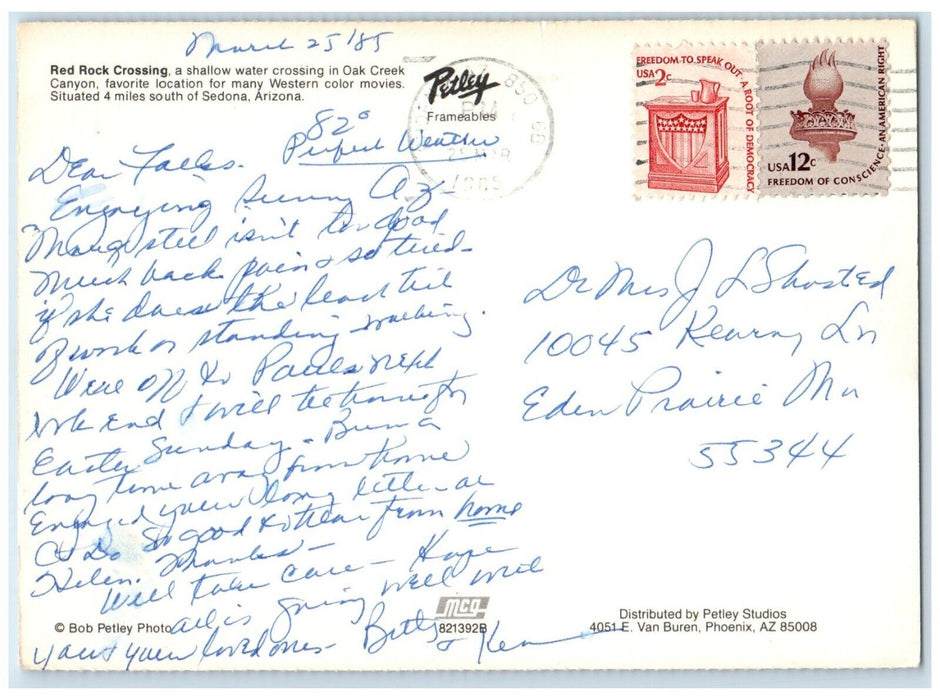 March 25/85
Red Rock Crossing, a shallow water crossing in Oak Creek
Canyon, favorite location for many Western color movies.
Situated 4 miles south of Sedona, Arizona.
Petley
Frameables
850
PM
1985
FREEDOM TO SPEAK OUT-A ROOT OF DEMOCRACY
USA 2c
USA 12c
FREEDOM OF CONSCIENCE-AN AMERICAN RIGHT
82°
Perfect Weather
Dear Folks-
Enjoying Sunny AZ
still isn't too good
Much back pain & so tired-
if she does the least bit
of work or standing walking.
We're off to Paul's next
wk end & will be home for
Easter Sunday - Been a
long time away from home
Enjoyed your long letter
So good to hear from home
Helen. Thanks-
Will take care - Hope
all is going well with
you & your loved ones- Betty & Ken
Dr Mrs J L
10045 Kearny Ln
Eden Prairie Mn
55344
© Bob Petley Photo
MCO
821392B
Distributed by Petley Studios
4051 E. Van Buren, Phoenix, AZ 85008